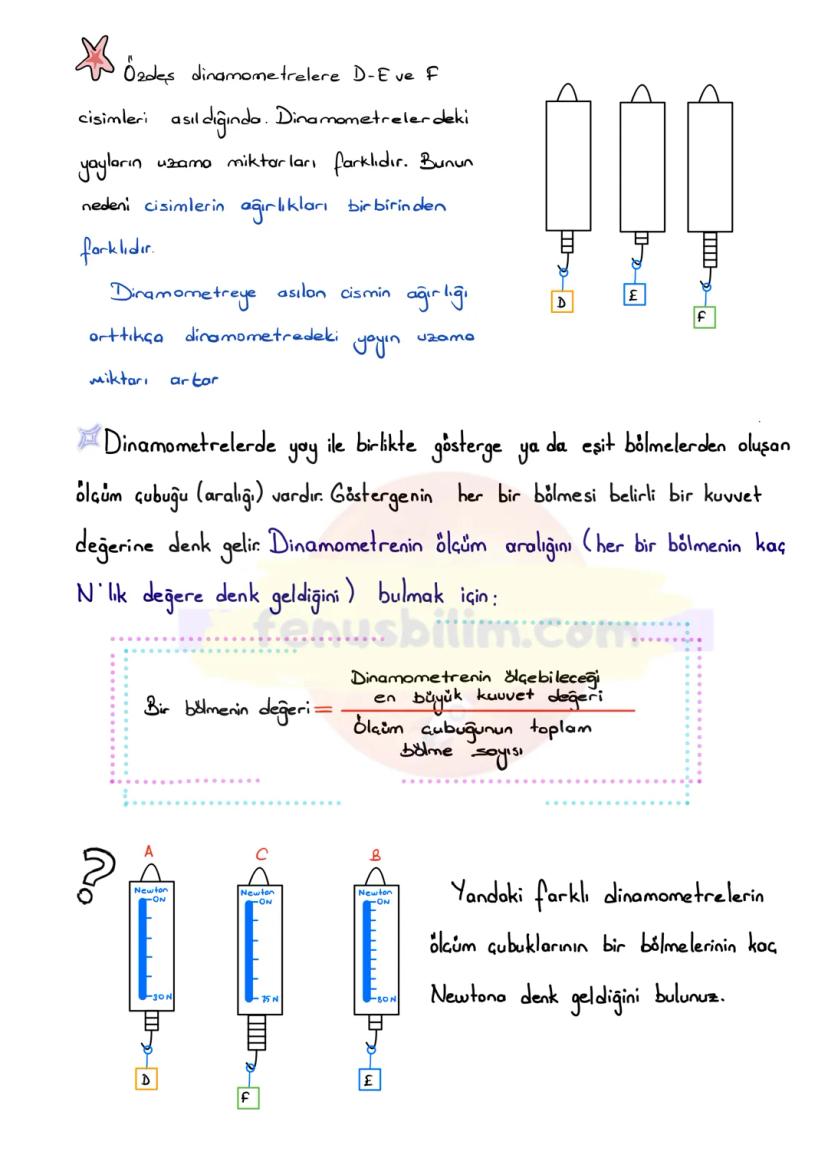 Özdeş dinamometrelere D-E ve F
cisimleri asıldığında. Dinamometrelerdeki
yayların uzama miktarları farklıdır. Bunun
nedeni cisimlerin ağırlıkları birbirinden
farklıdır.
Dinamometreye asılan cismin ağırlığı
orttıkça dinamometredeki yayın uzama
miktarı artar
D
E
F
Dinamometrelerde yay ile birlikte gösterge ya da eşit bölmelerden oluşan
ölçüm çubuğu (aralığı) vardır. Göstergenin her bir bölmesi belirli bir kuvvet
değerine denk gelir. Dinamometrenin ölçüm aralığını (her bir bölmenin kaç
N'lık değere denk geldiğini) bulmak için:
fenusbilim.com
Bir bölmenin değeri = Dinamometrenin ölçebileceği
en büyük kuvvet değeri
Ölçüm çubuğunun toplam
bölme sayısı
?
A
C
B
Newton
Newton
Newton
0N
0N
0N
30N
75N
80N
D
F
E
Yandaki farklı dinamometrelerin
ölçüm çubuklarının bir bölmelerinin kaç
Newtona denk geldiğini bulunuz.